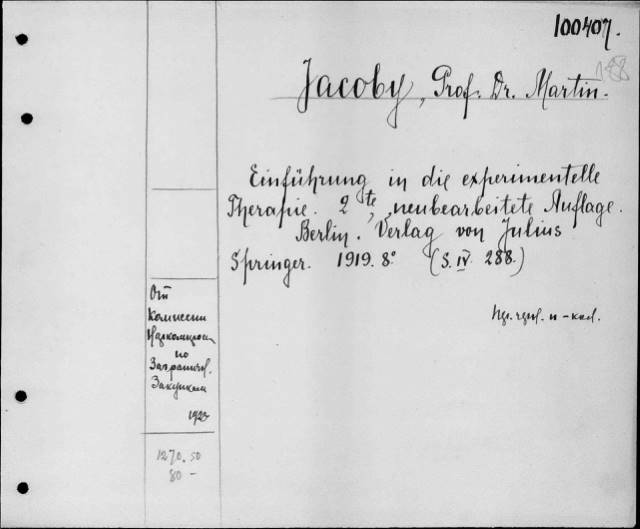 100407.
Jacoby, Prof. Dr. Martin.
Einführung in die experimentelle
Therapie. 2te, neubearbeitete Auflage.
Berlin. Verlag von Julius
Springer. 1919. 8° (S. IV. 288.)
От
Комиссии
по
Заграничн.
Закупкам
1923
1270.50
80 –